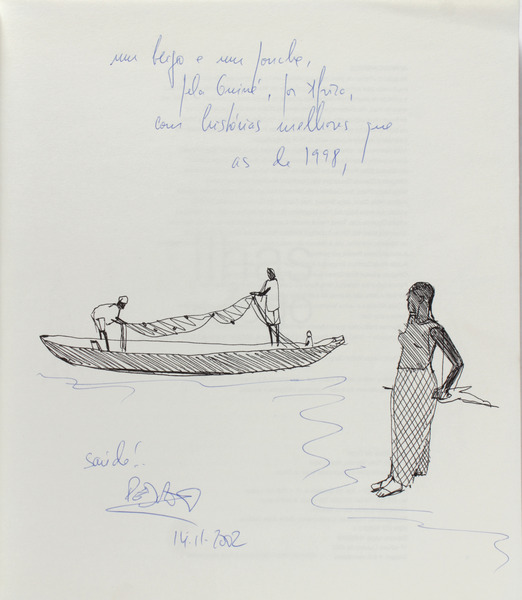 um beijo e um ponche,
pela Guiné, por África,
com histórias melhores que
as de 1998,
ilhas
saúde!..
14.11.2002